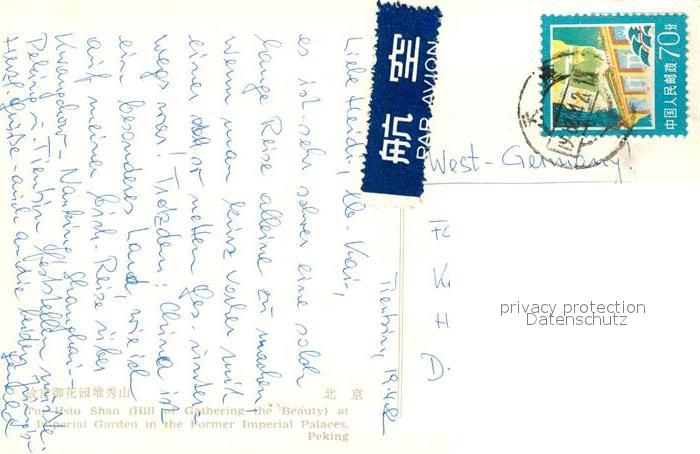 Tientsin, 19.4.82
Liebe Heidi, lb. Kai,
es ist sehr schwer eine solch
lange Reise alleine zu machen,
wenn man kurz vorher mit
einer so netten
wegs war! Trotzdem: China ist
ein besonderes Land, wie ich
auf meiner bish. Reise über
Kwangchow - Nanking, Shanghai -
Peking u. Tientsin feststellen mußte.
Herzl. Grüße - auch an die beiden
航空
PAR AVION
中国人民邮政
70分
West-Germany
privacy protection
Datenschutz
故宫御花园堆秀山 北京
Tui Hsiu Shan (Hill of Gathering the Beauty) at
Imperial Garden in the Former Imperial Palaces,
Peking